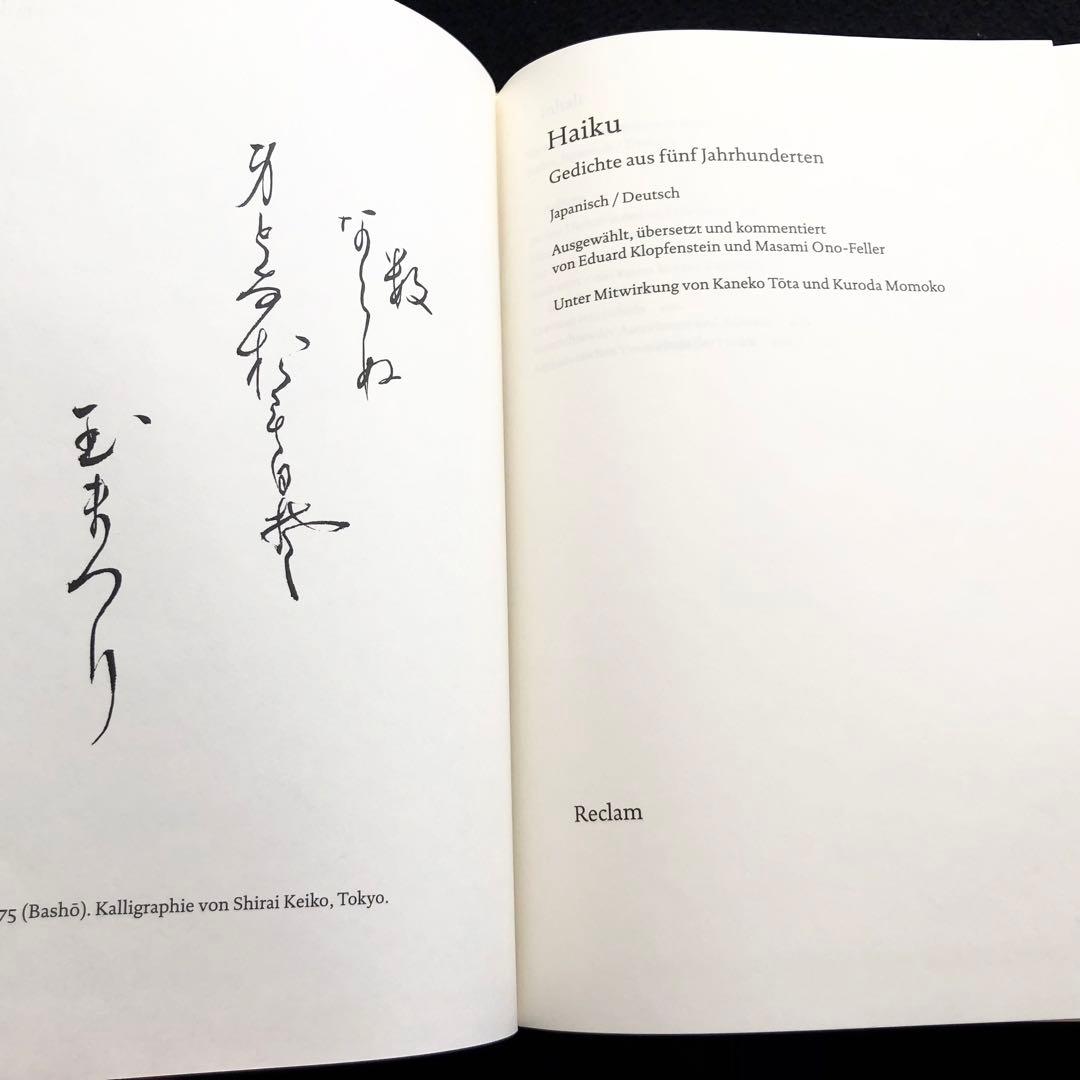 数
ならぬ
身となおもひそ
玉まつり
75 (Bashō). Kalligraphie von Shirai Keiko, Tokyo.
Haiku
Gedichte aus fünf Jahrhunderten
Japanisch / Deutsch
Ausgewählt, übersetzt und kommentiert
von Eduard Klopfenstein und Masami Ono-Feller
Unter Mitwirkung von Kaneko Tōta und Kuroda Momoko
Reclam